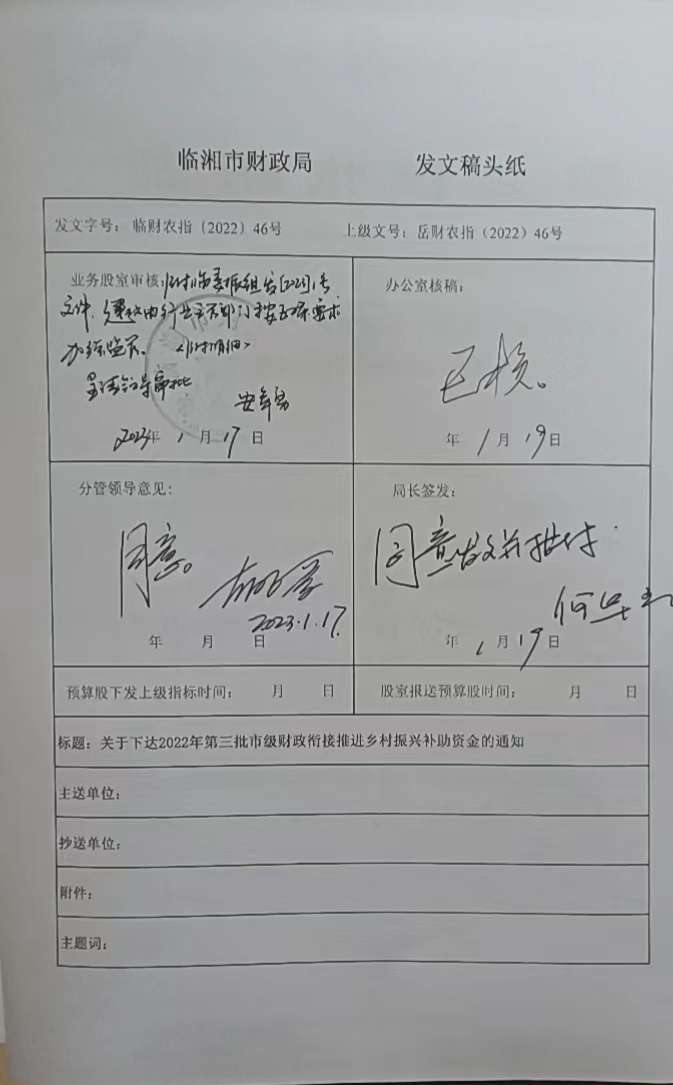 临湘市财政局 发文稿头纸
发文字号：临财农指〔2022〕46号 上级文号：岳财农指（2022）46号
业务股室审核：附临委振组发[2023]1号
文件，建议由行业主管部门按要求
加强监管。〈附明细〉
呈请领导审批
2023年1月17日
办公室核稿：
已核。
年1月19日
分管领导意见：
同意。
2023.1.17.
年 月 日
局长签发：
同意发文并拨付.
年1月19日
预算股下发上级指标时间： 月 日 股室报送预算股时间： 月 日
标题：关于下达2022年第三批市级财政衔接推进乡村振兴补助资金的通知
主送单位：
抄送单位：
附件：
主题词：